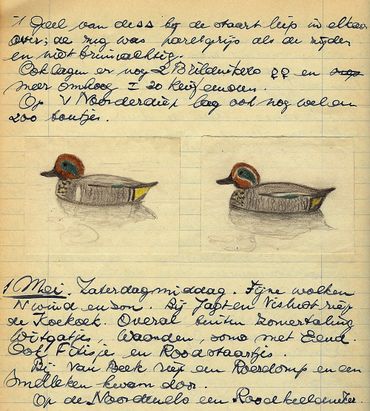 't Geel van deze bij de staart liep in elkaar
over; de rug was parelgrijs als de zijden
en niet bruinachtig.
Ook lagen er nog 2 Brilduikers ♀♀ en
meer omhoog ± 20 kuifeenden.
Op 't Noorderdiep lag ook nog wel een
200 tontjes.
1 Mei. Zaterdagmiddag. Fijne wolken
N wind en zon. Bij Jagt en Vishut riep
de Koekoek. Overal buiten zomertaling
Witgatjes,
Ook Fitisjes en Roodstaartjes.
Bij van Beek riep een Roerdomp en een
Smelleken kwam door.
Op de een